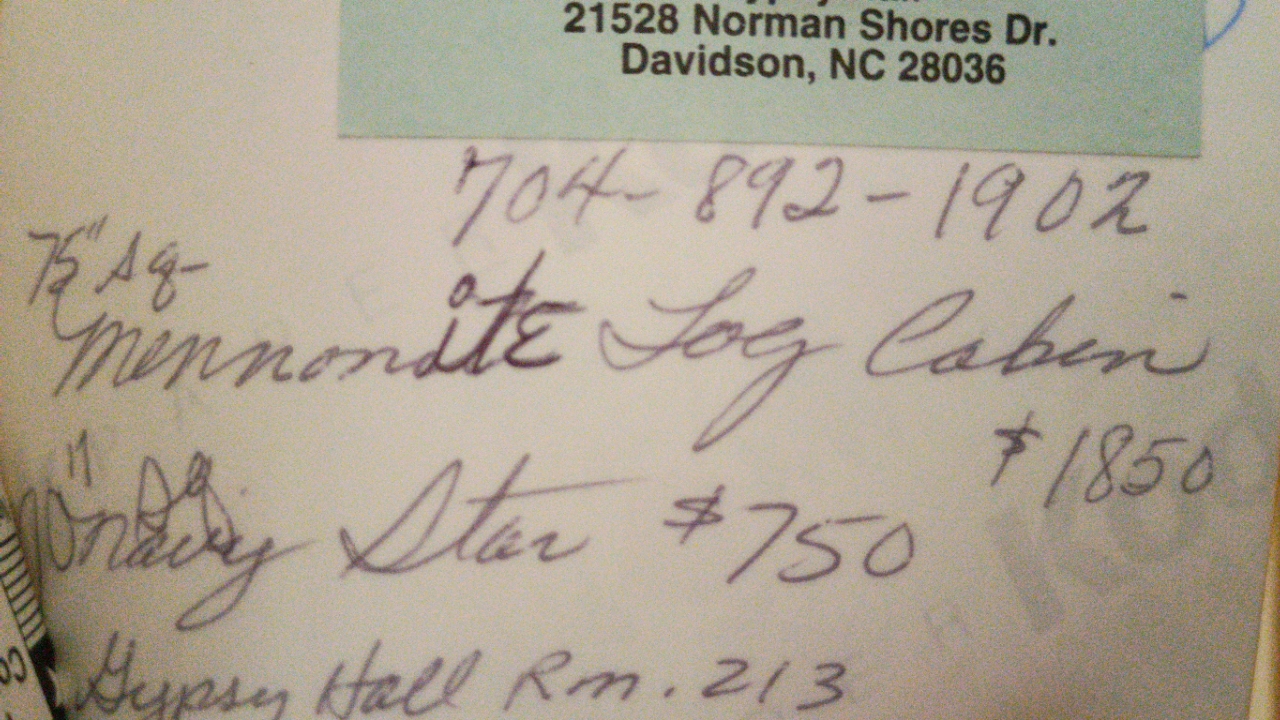 21528 Norman Shores Dr.
Davidson, NC 28036
704-892-1902
75" sq-
Mennonite Log Cabin
$1850
Navy Star $750
Gypsy Hall Rm. 213